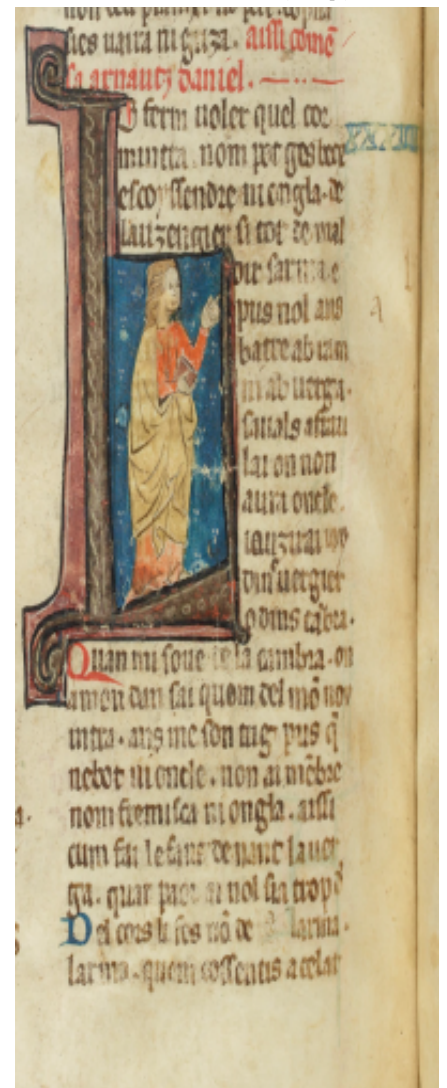 sies uaira ni guza. aissi comē
sa arnautz daniel.
L ferm uoler quel cor
mintra. nom pot ges becx
escoyssendre ni ongla. de
lauzengier si tot de mal
dir sarma. e
pus nol aus
batre ab ram
ni ab uerga.
siuals a frau
lai on non
aura oncle.
iauzirai ioy
dins uergier
o dins cābra.
Quan mi soue de la cambra. on
a mon dan sai quom del mō non
intra. ans me son tug pus q̄
nebot ni oncle. non ai mēbre
nom fremisca ni ongla. aissi
cum fai lefans denant la uer
ga. quar paor ai nol sia trop
Del cors li fos nō de larma.
larma. quem cossentis a celat